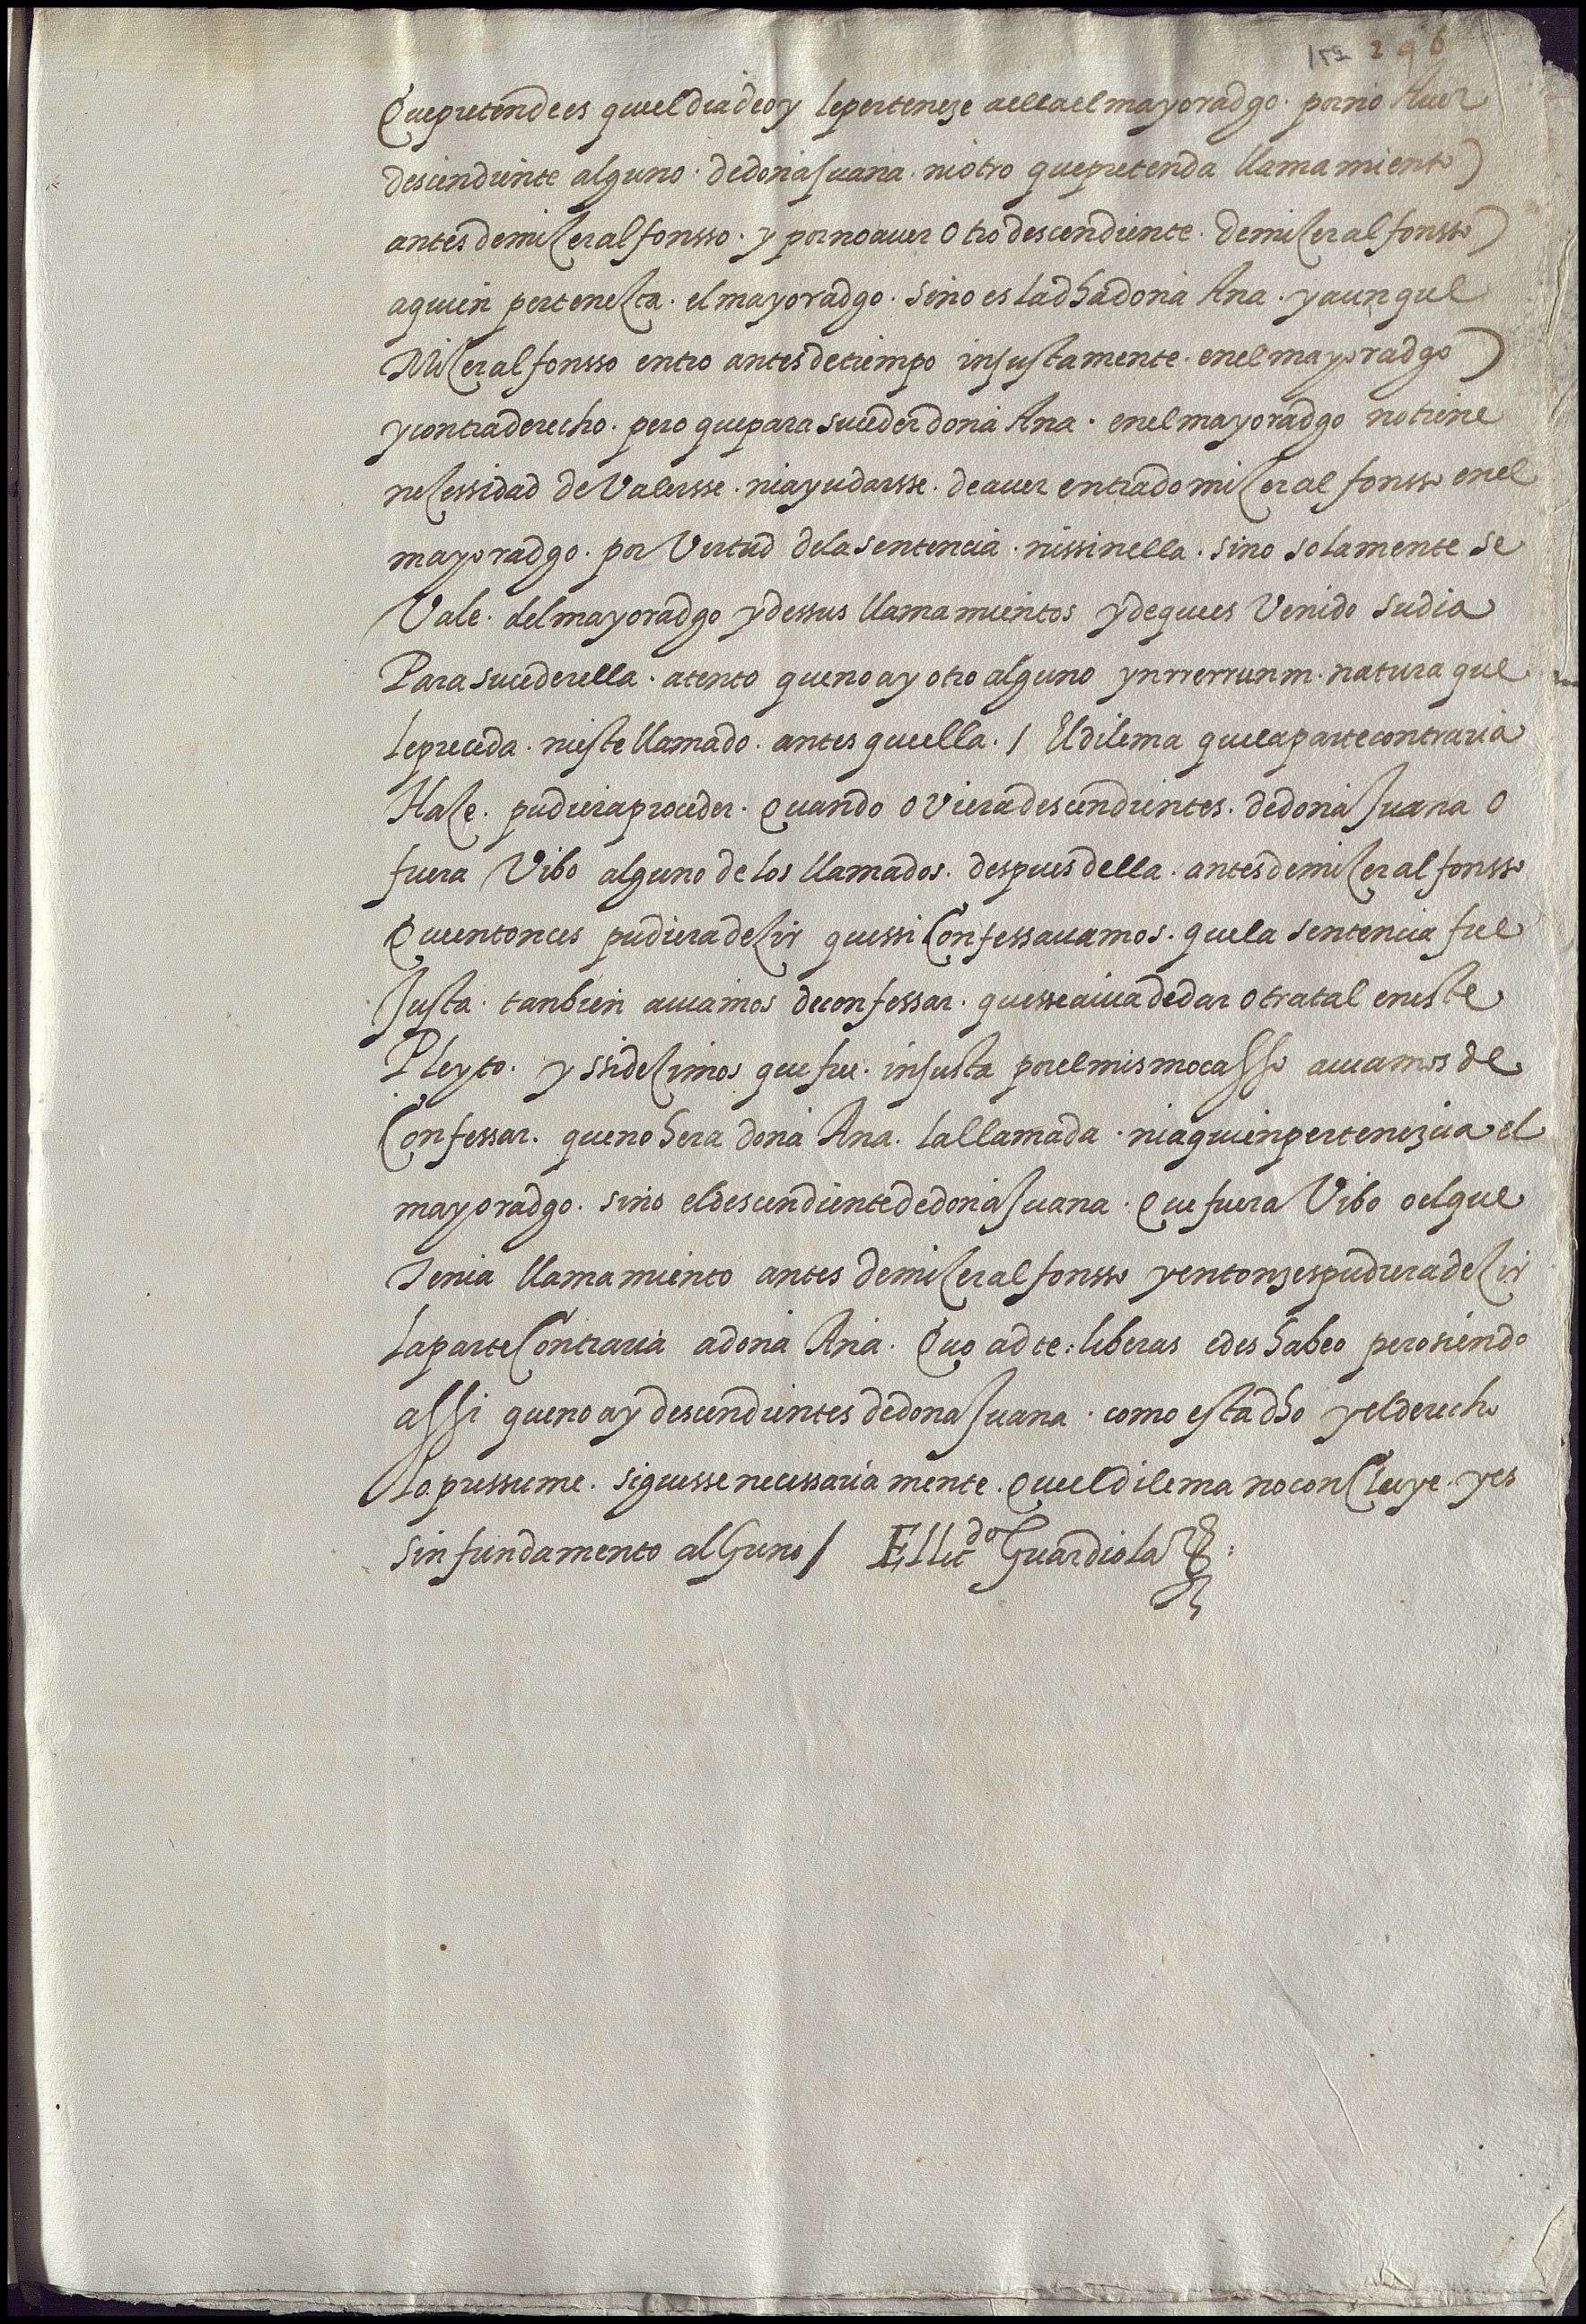 152 296
Que pretende es quel dia deoy le perteneze a ella el mayoradgo · por no Auer
descendiente alguno · de doña Juana · ni otro que pretenda llamamiento
antes de miçer alfonsso · y por no auer otro descendiente · de miçer alfonsso
a quien pertenesca · el mayoradgo · sino es la dha doña Ana · y aunque
Miçer alfonsso entro antes de tiempo injustamente · en el mayoradgo
y contra derecho · pero que para suceder doña Ana · en el mayoradgo no tiene
neçessidad de Valersse · ni ayudarsse · de auer entrado miçer alfonsso en el
mayoradgo · por Vertud dela sentencia · ni ssin ella · sino solamente se
Vale · del mayoradgo y dessus llamamientos y de ques Venido su dia
Para suceder ella · atento que no ay otro alguno yn rrerrunm · natura que
le preceda · ni este llamado · antes quella · / El dilema que la parte contraria
Haçe · pudiera proceder · Quando oviera descendientes · de doña Juana o
fuera Vibo alguno de los llamados · despues della · antes de miçer alfonsso
Quentonces pudiera deçir quessi Confessauamos · que la sentencia fue
Justa · tanbien auiamos de confessar · quesse auia de dar otra tal en este
Pleyto · y ssi deçimos que fue · injusta por el mismo casso auiamos de
Confessar · que no hera doña Ana · la llamada · ni a quien pertenezia el
mayoradgo · sino el descendiente de doña Juana · Que fuera Vibo o el que
Tenia llamamiento antes de miçer alfonsso y entonzes pudiera deçir
la parte Contraria a doña Ana · Quo ad te : liberas edes habeo pero siendo
assi que no ay descendientes de dona Juana · como esta dho y el derecho
Lo pressume · siguesse necessaria mente · Quel dilema no concluye · y es
sin fundamento alguno / El licdo Guardiola